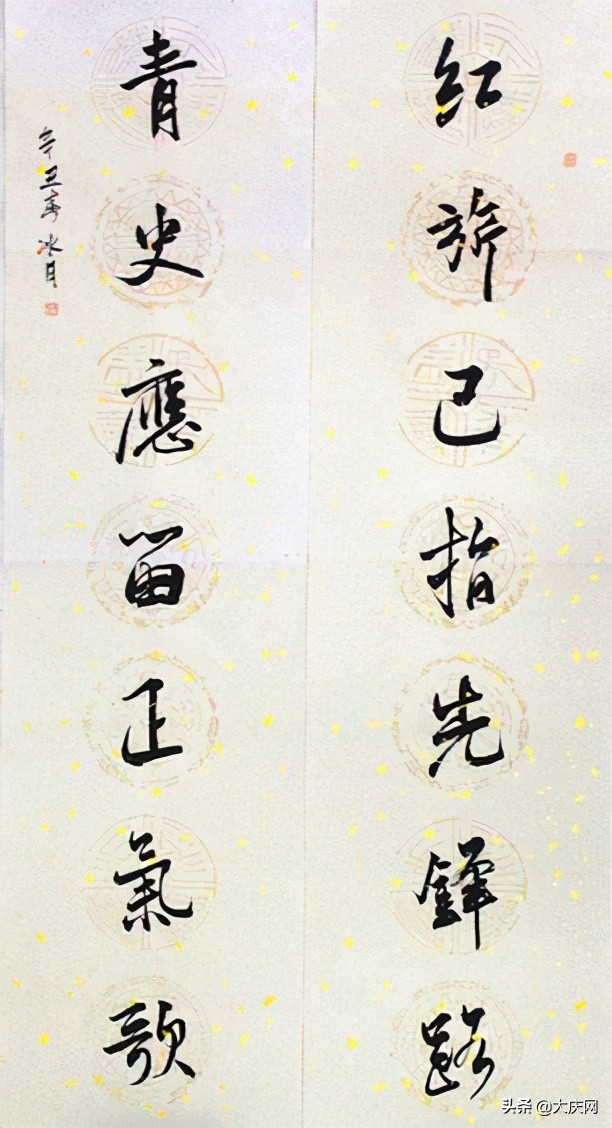 红旂已指先鋒路
青史應留正氣歌
辛丑春 冰月
头条 @大庆网